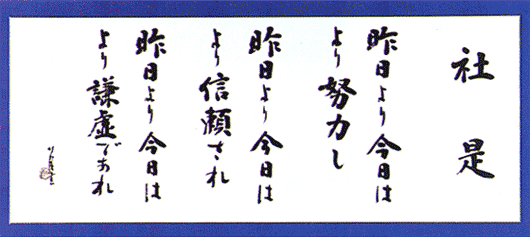 社是
昨日より今日は
より努力し
昨日より今日は
より信頼され
昨日より今日は
より謙虚であれ